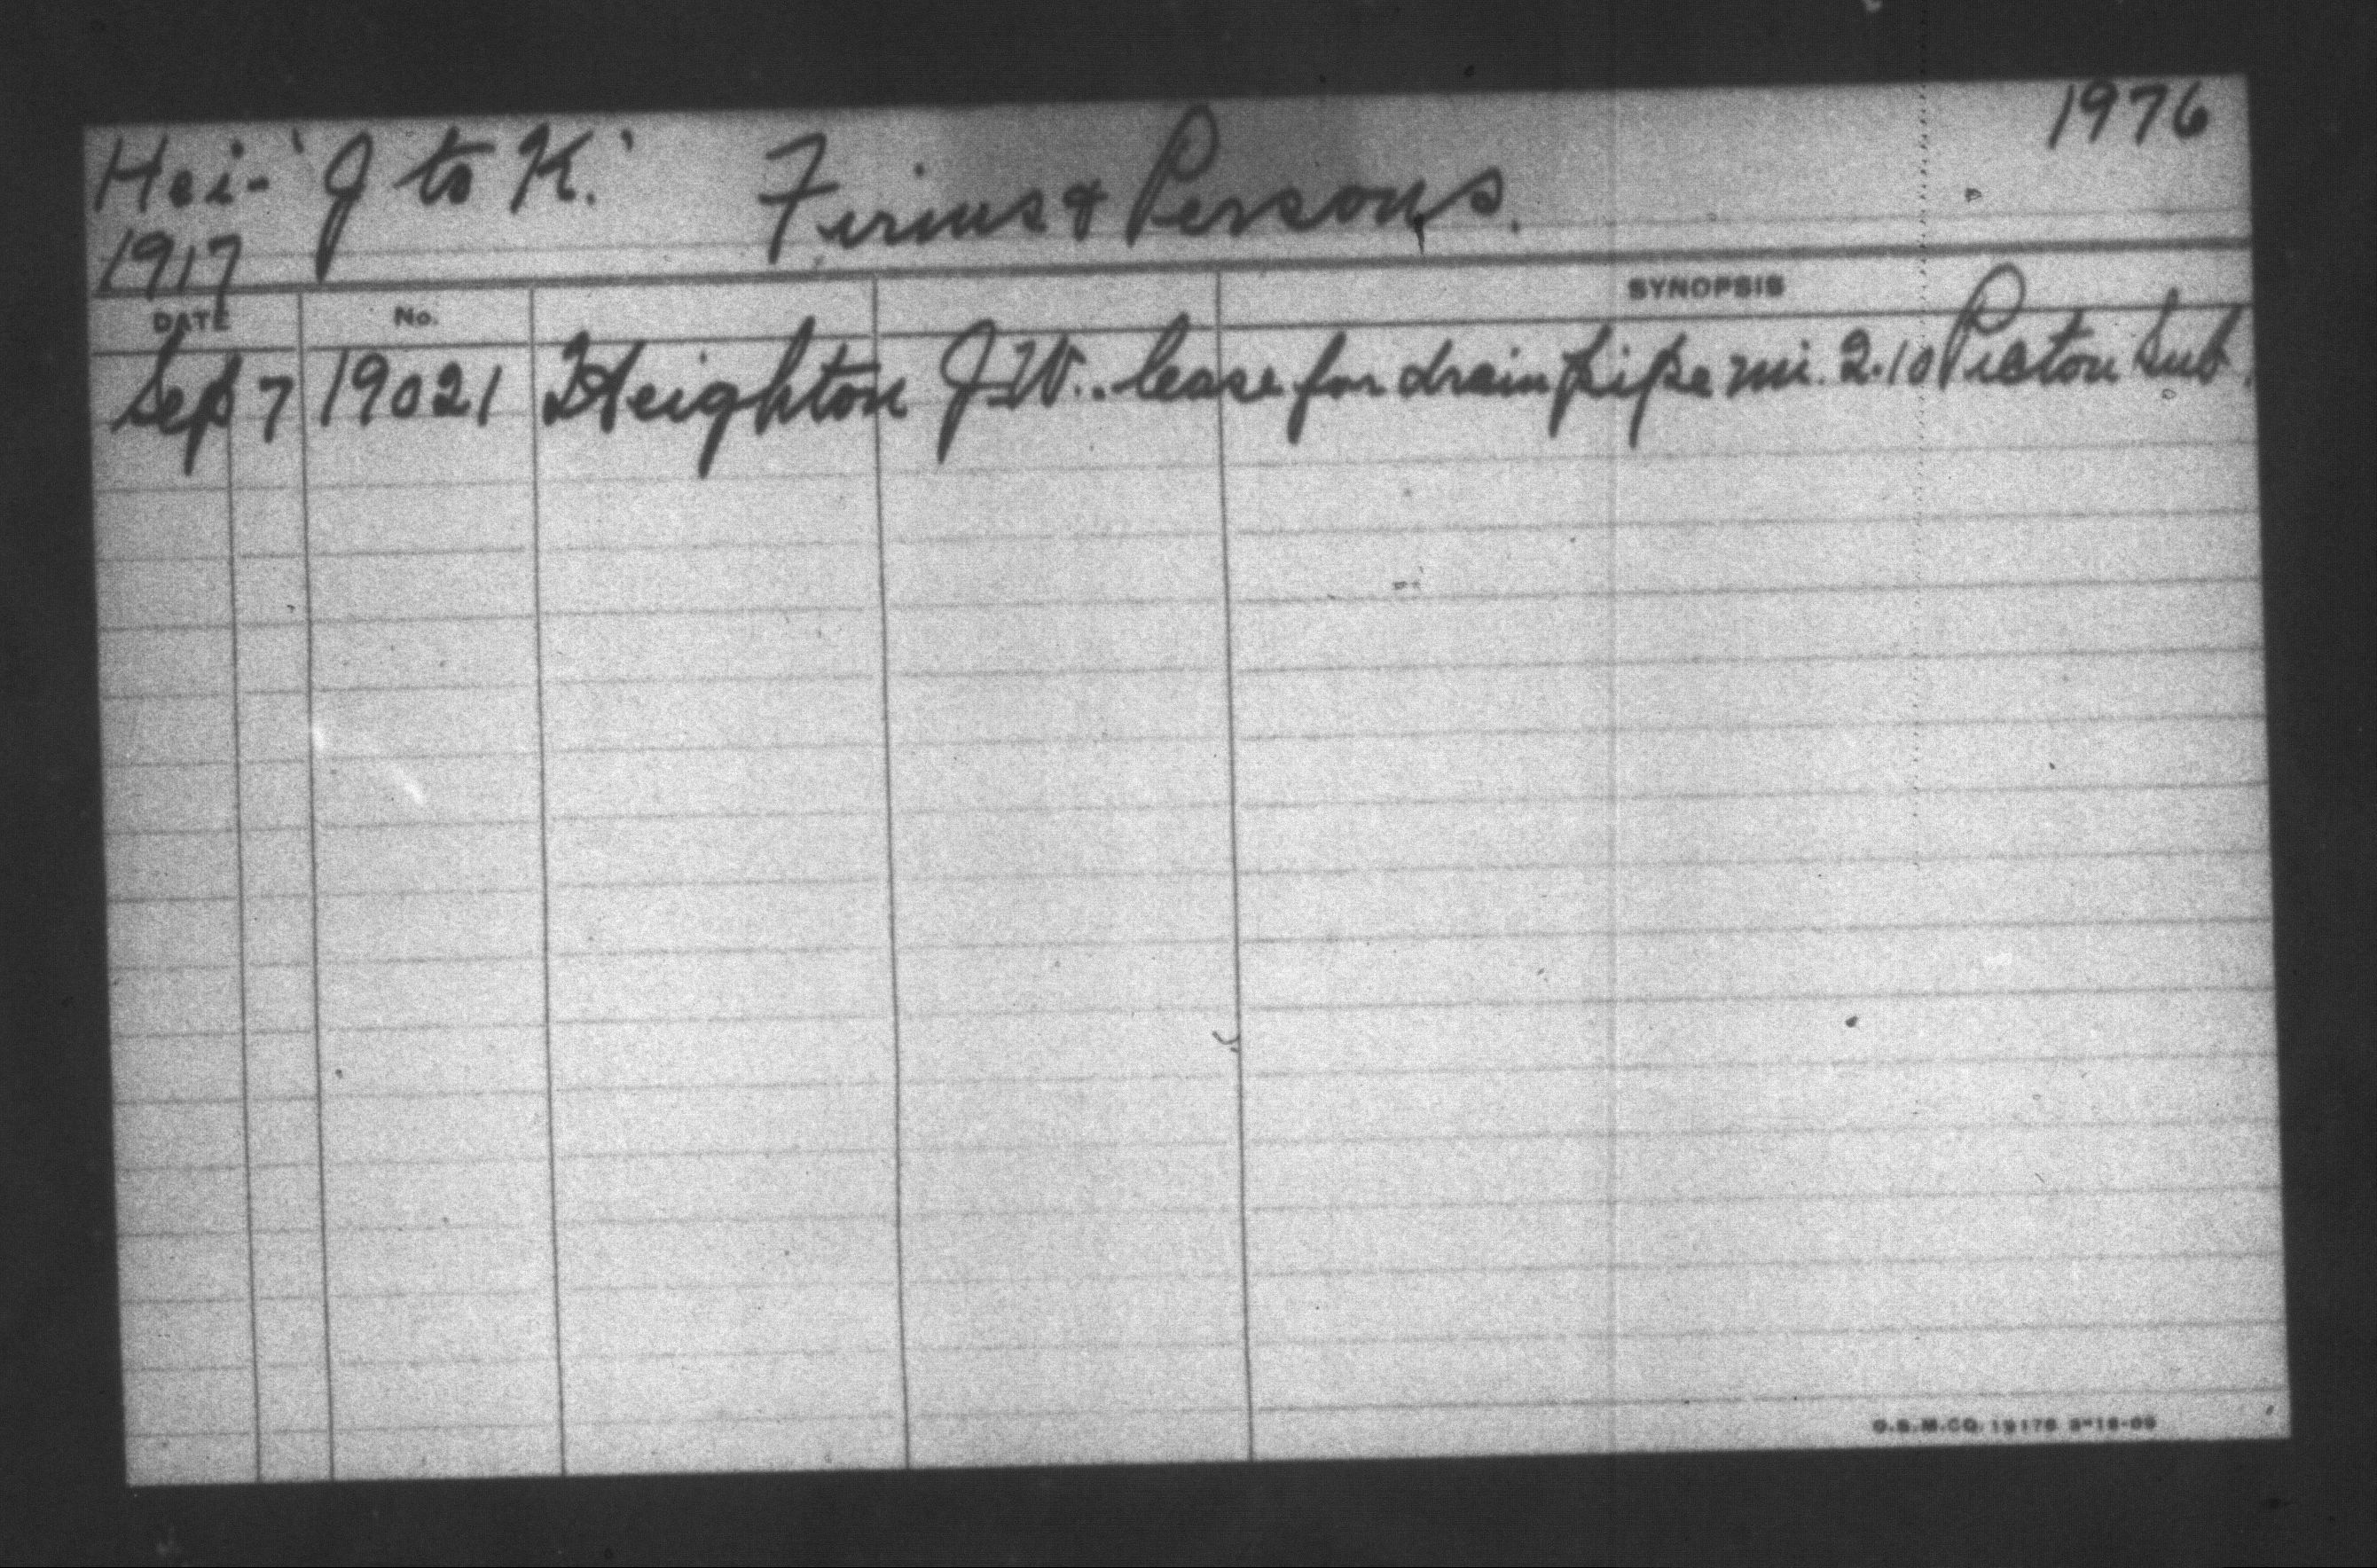 1976
Hei- 'J to K.' Firms & Persons.
1917
DATE No. SYNOPSIS
Sep 7 19021 Heighton J.W.. lease for drain pipe mi. 2.10 Pictou Sub.
O.S.M.CO. 19176